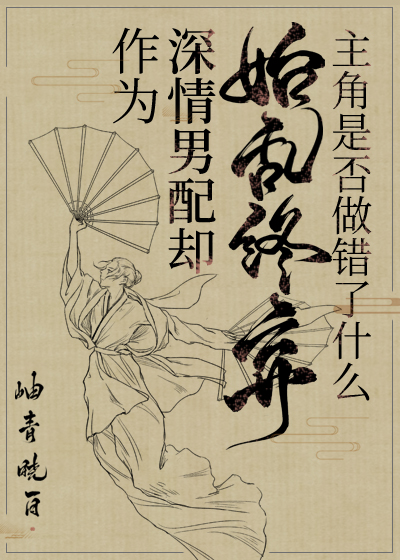 作为
深情男配却
始乱终弃
主角是否做错了什么
岫青晓百